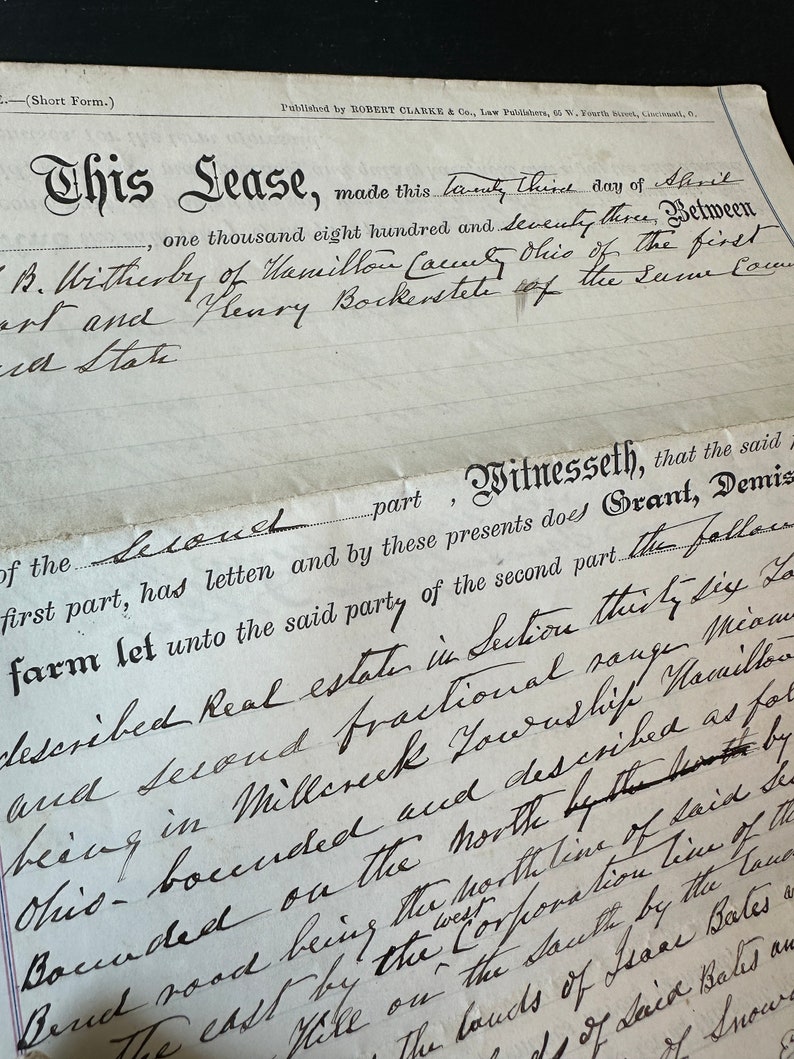 E.—(Short Form.)
Published by ROBERT CLARKE & Co., Law Publishers, 65 W. Fourth Street, Cincinnati, O.
This Lease, made this twenty third day of April
, one thousand eight hundred and seventy three, Between
B. Witherby of Hamilton County Ohio of the first
art and Henry Bockerstete of the Same Coun
nd State
of the Second part , Witnesseth, that the said p
first part, has letten and by these presents does Grant, Demis
farm let unto the said party of the second part the follow
described Real estate in Section thirty six To
and second fractional range Miami
being in Millcreek Township Hamilton
Ohio- bounded and described as fol
Bounded on the North by the North by
Bend road being the north line of said Sec
the east by the west Corporation line of the
Hill on the South by the land
the lands of Isaac Bates a
of said Bates an
of Snow